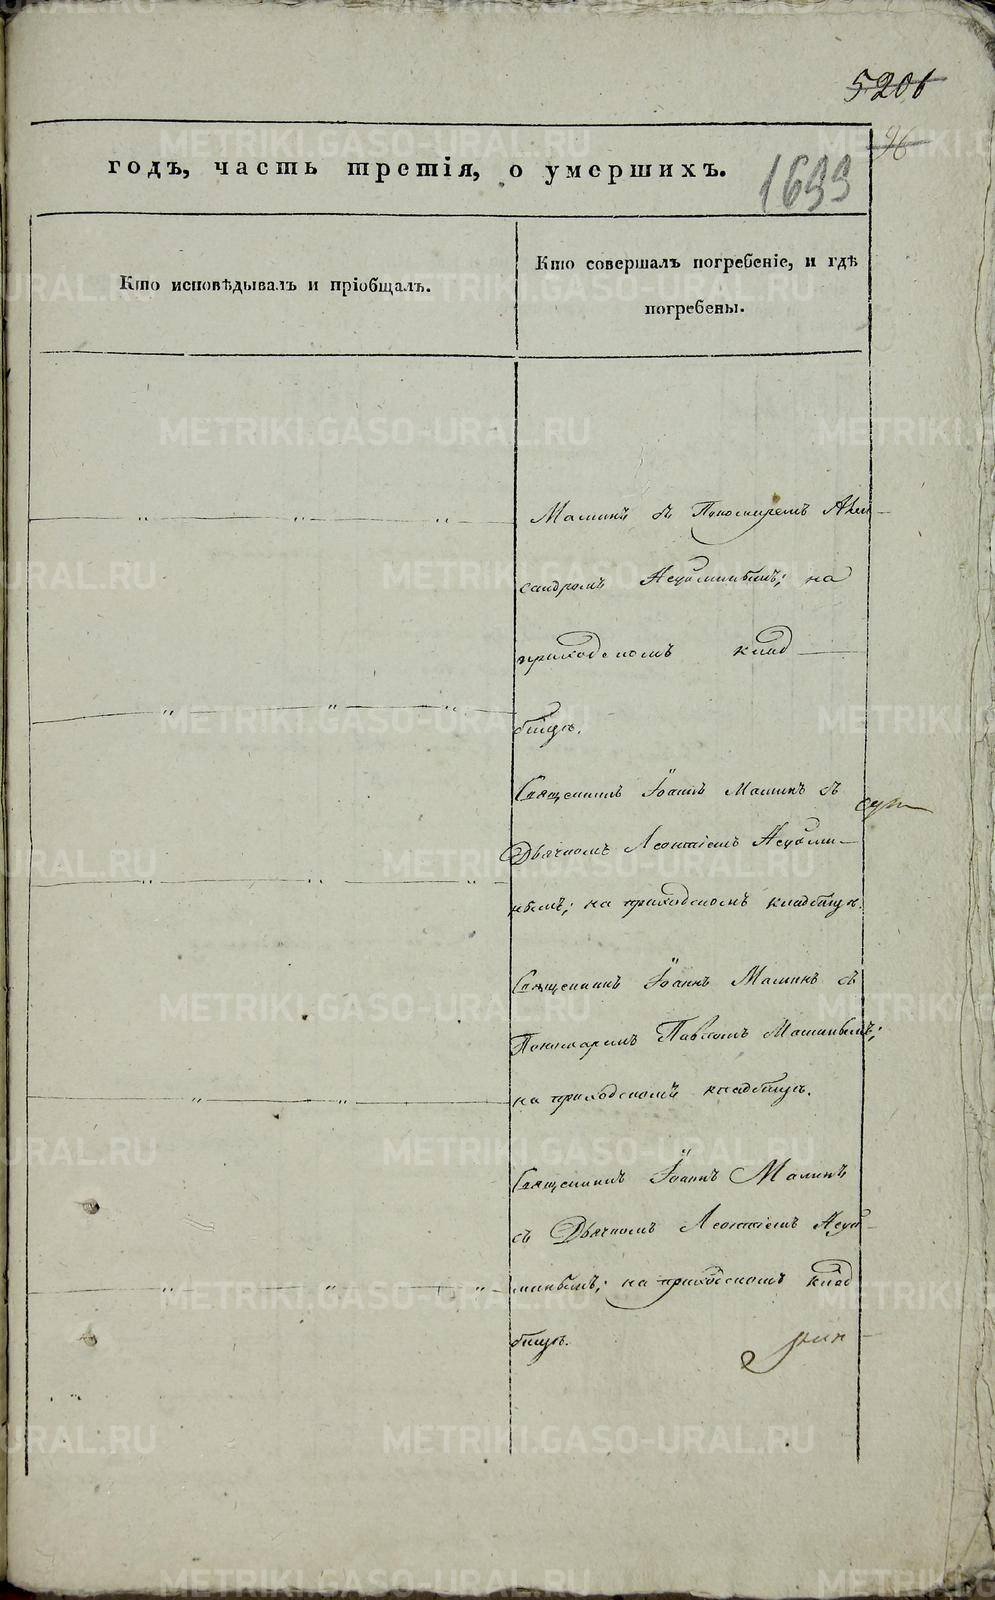 5206
96
годъ, часть третія, о умершихъ.
1633
Кто исповѣдывалъ и пріобщалъ.
Кто совершалъ погребеніе, и гдѣ
погребены.
Маминъ съ Пономаремъ Алек
сандромъ
на
приходскомъ клад
бищѣ.
Священникъ Іоаннъ Маминъ съ
Дьячкомъ Леонтіемъ
на приходскомъ кладбищѣ.
Священникъ Іоаннъ Маминъ съ
Пономаремъ Павломъ Маминымъ;
на приходскомъ кладбищѣ.
Священникъ Іоаннъ Маминъ
съ Дьячкомъ Леонтіемъ
на приходскомъ клад
бищѣ.
METRIKI.GASO-URAL.RU